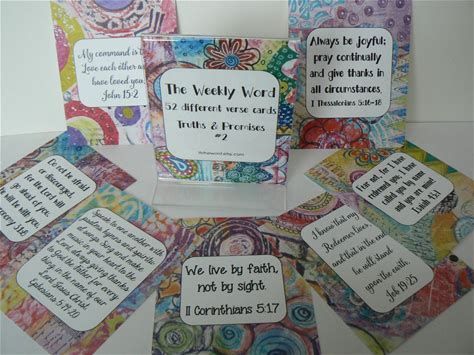 My command is
Love each other as
have loved you.
John 15:2
The Weekly Word
52 different verse cards
Truths & Promises
#2
Always be joyful;
pray continually
and give thanks in
all circumstances.
I Thessalonians 5:16-18
Do not be afraid
or discouraged,
for the Lord will
go ahead of you,
will be with you.
Speak to one another with
psalms, hymns and spiritual
songs. Sing and make
music in your heart to the
Lord, always giving thanks
to God the Father for every
thing, in the name of our
Lord Jesus Christ.
Ephesians 5:19-20
We live by faith,
not by sight.
II Corinthians 5:17
I know that my
Redeemer lives,
and that in the end
he will stand
upon the earth.
Job 19:25
Fear not, for I have
redeemed you; I have
called you by name
and you are mine.
Isaiah 43:1